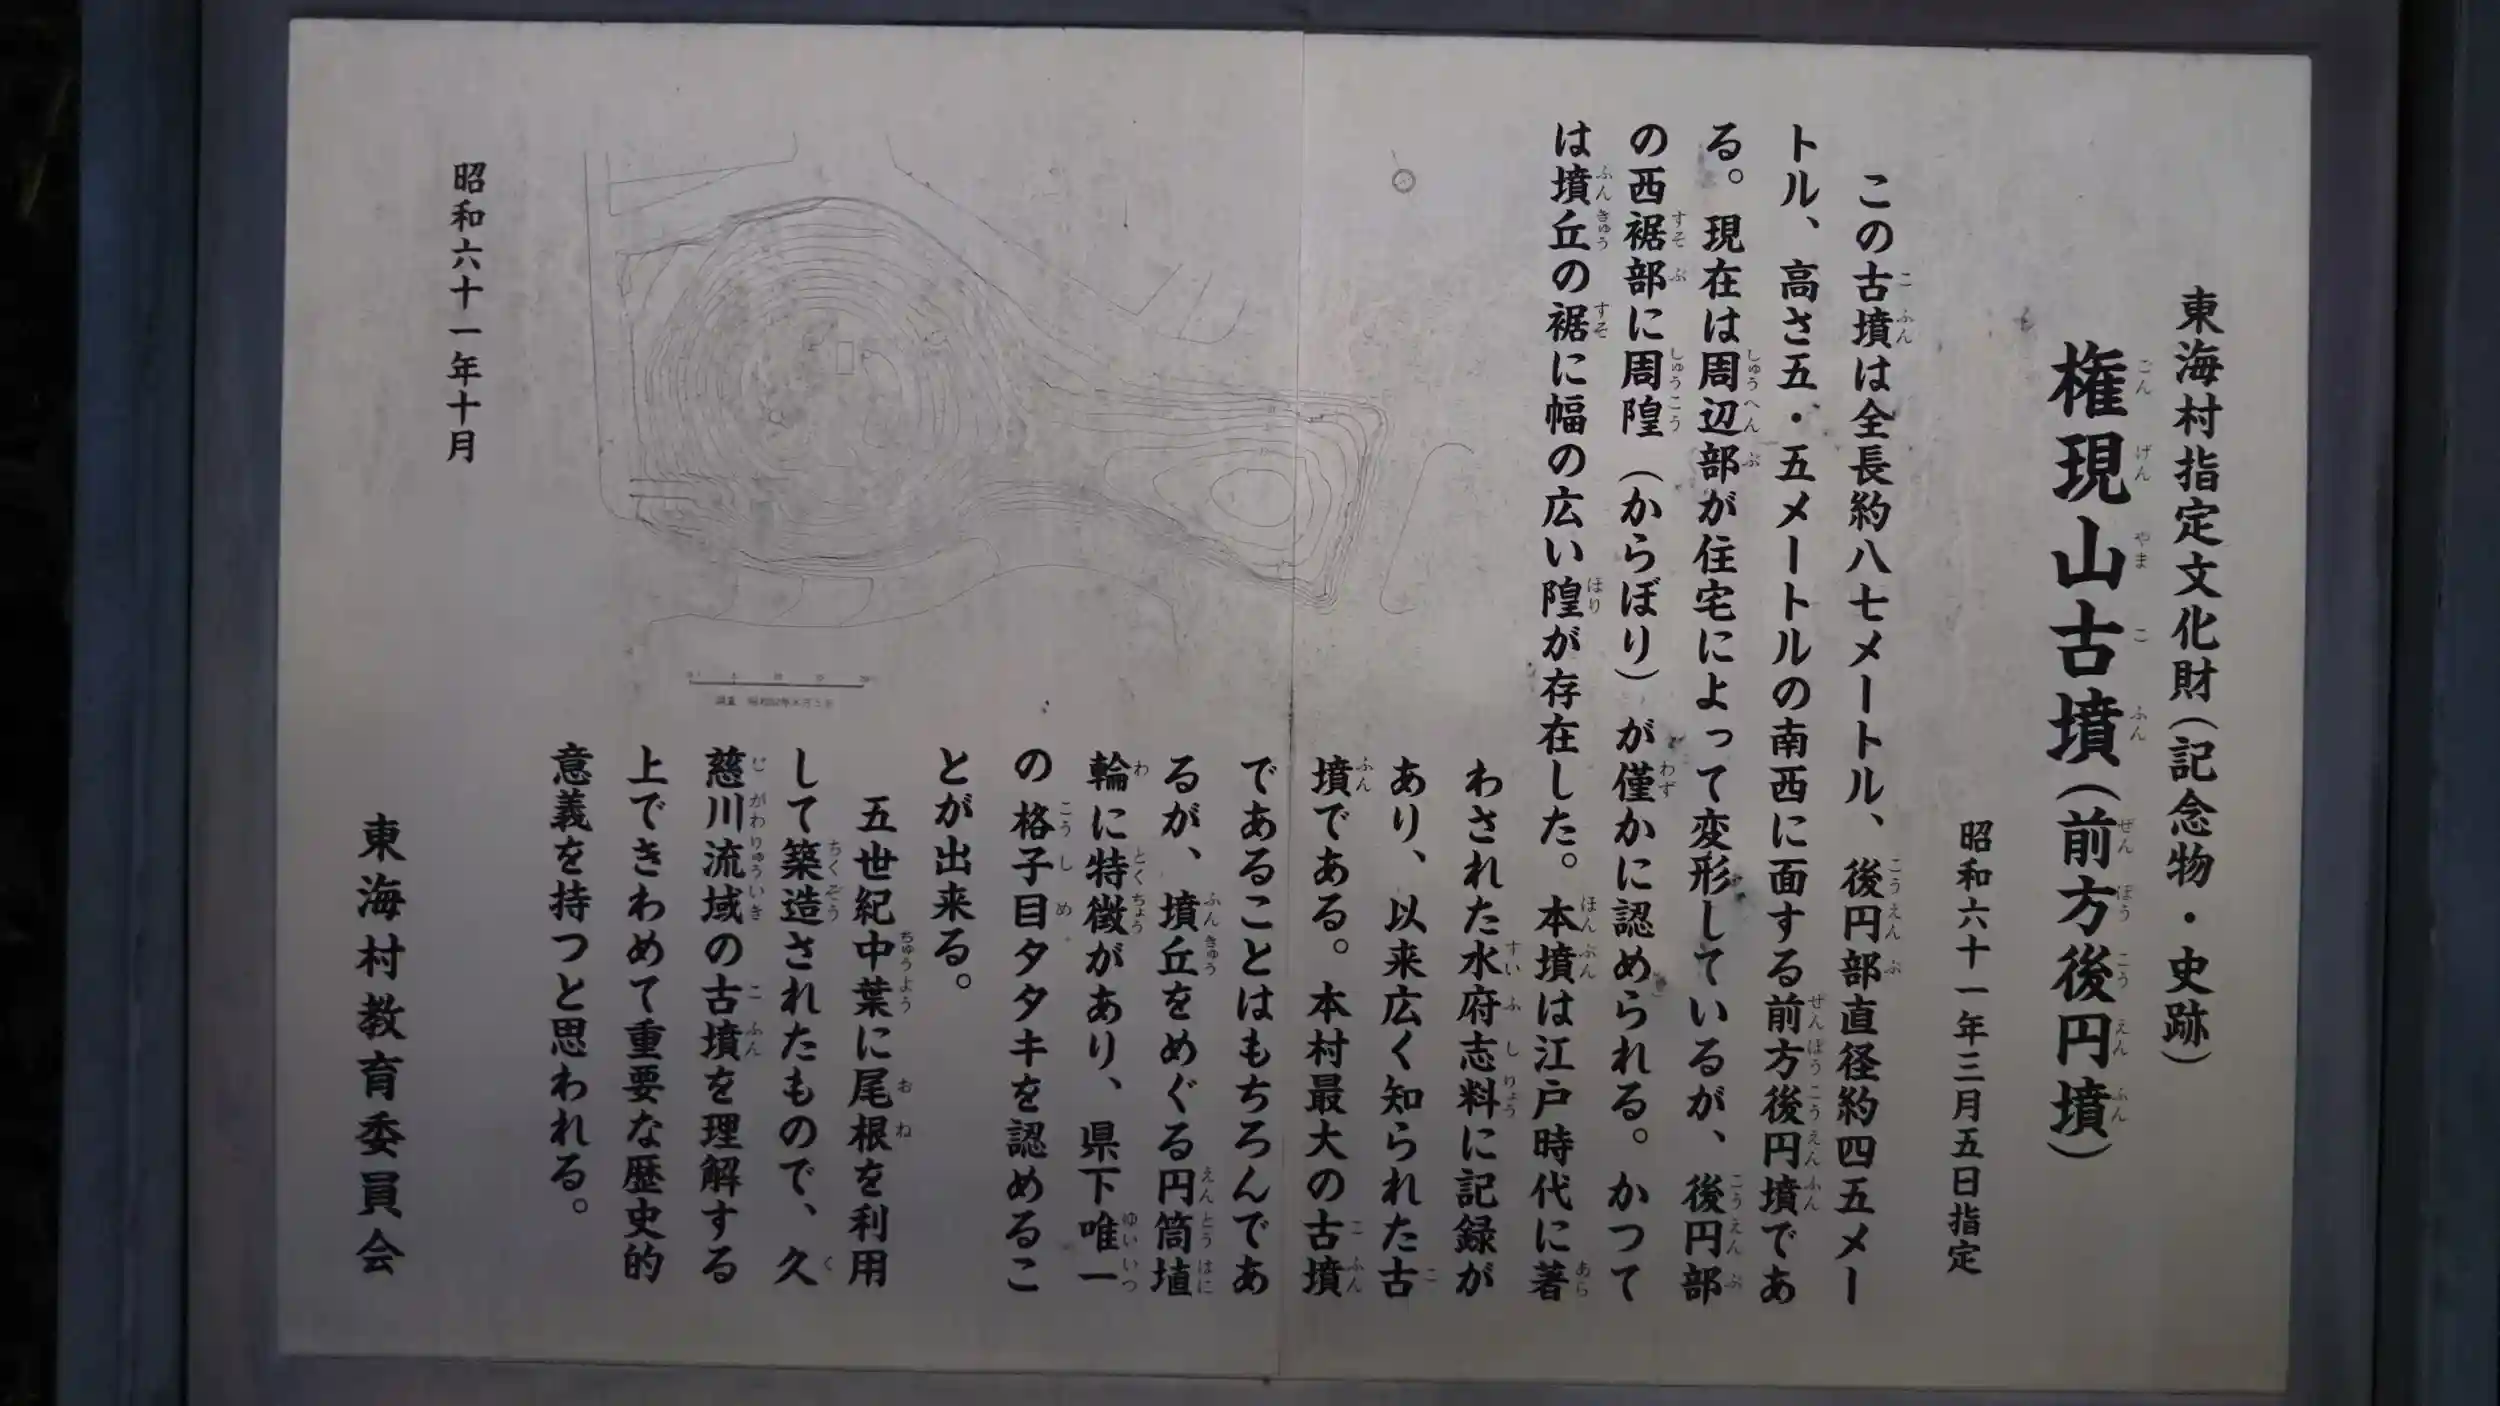 東海村指定文化財(記念物・史跡)
権現山古墳(前方後円墳)
昭和六十一年三月五日指定
この古墳は全長約八七メートル、後円部直径約四五メー
トル、高さ五・五メートルの南西に面する前方後円墳であ
る。現在は周辺部が住宅によって変形しているが、後円部
の西裾部に周隍(からぼり)が僅かに認められる。かつて
は墳丘の裾に幅の広い隍が存在した。本墳は江戸時代に著
わされた水府志料に記録が
あり、以来広く知られた古
墳である。本村最大の古墳
であることはもちろんであ
るが、墳丘をめぐる円筒埴
輪に特徴があり、県下唯一
の格子目タタキを認めるこ
とが出来る。
五世紀中葉に尾根を利用
して築造されたもので、久
慈川流域の古墳を理解する
上できわめて重要な歴史的
意義を持つと思われる。
昭和六十一年十月
東海村教育委員会